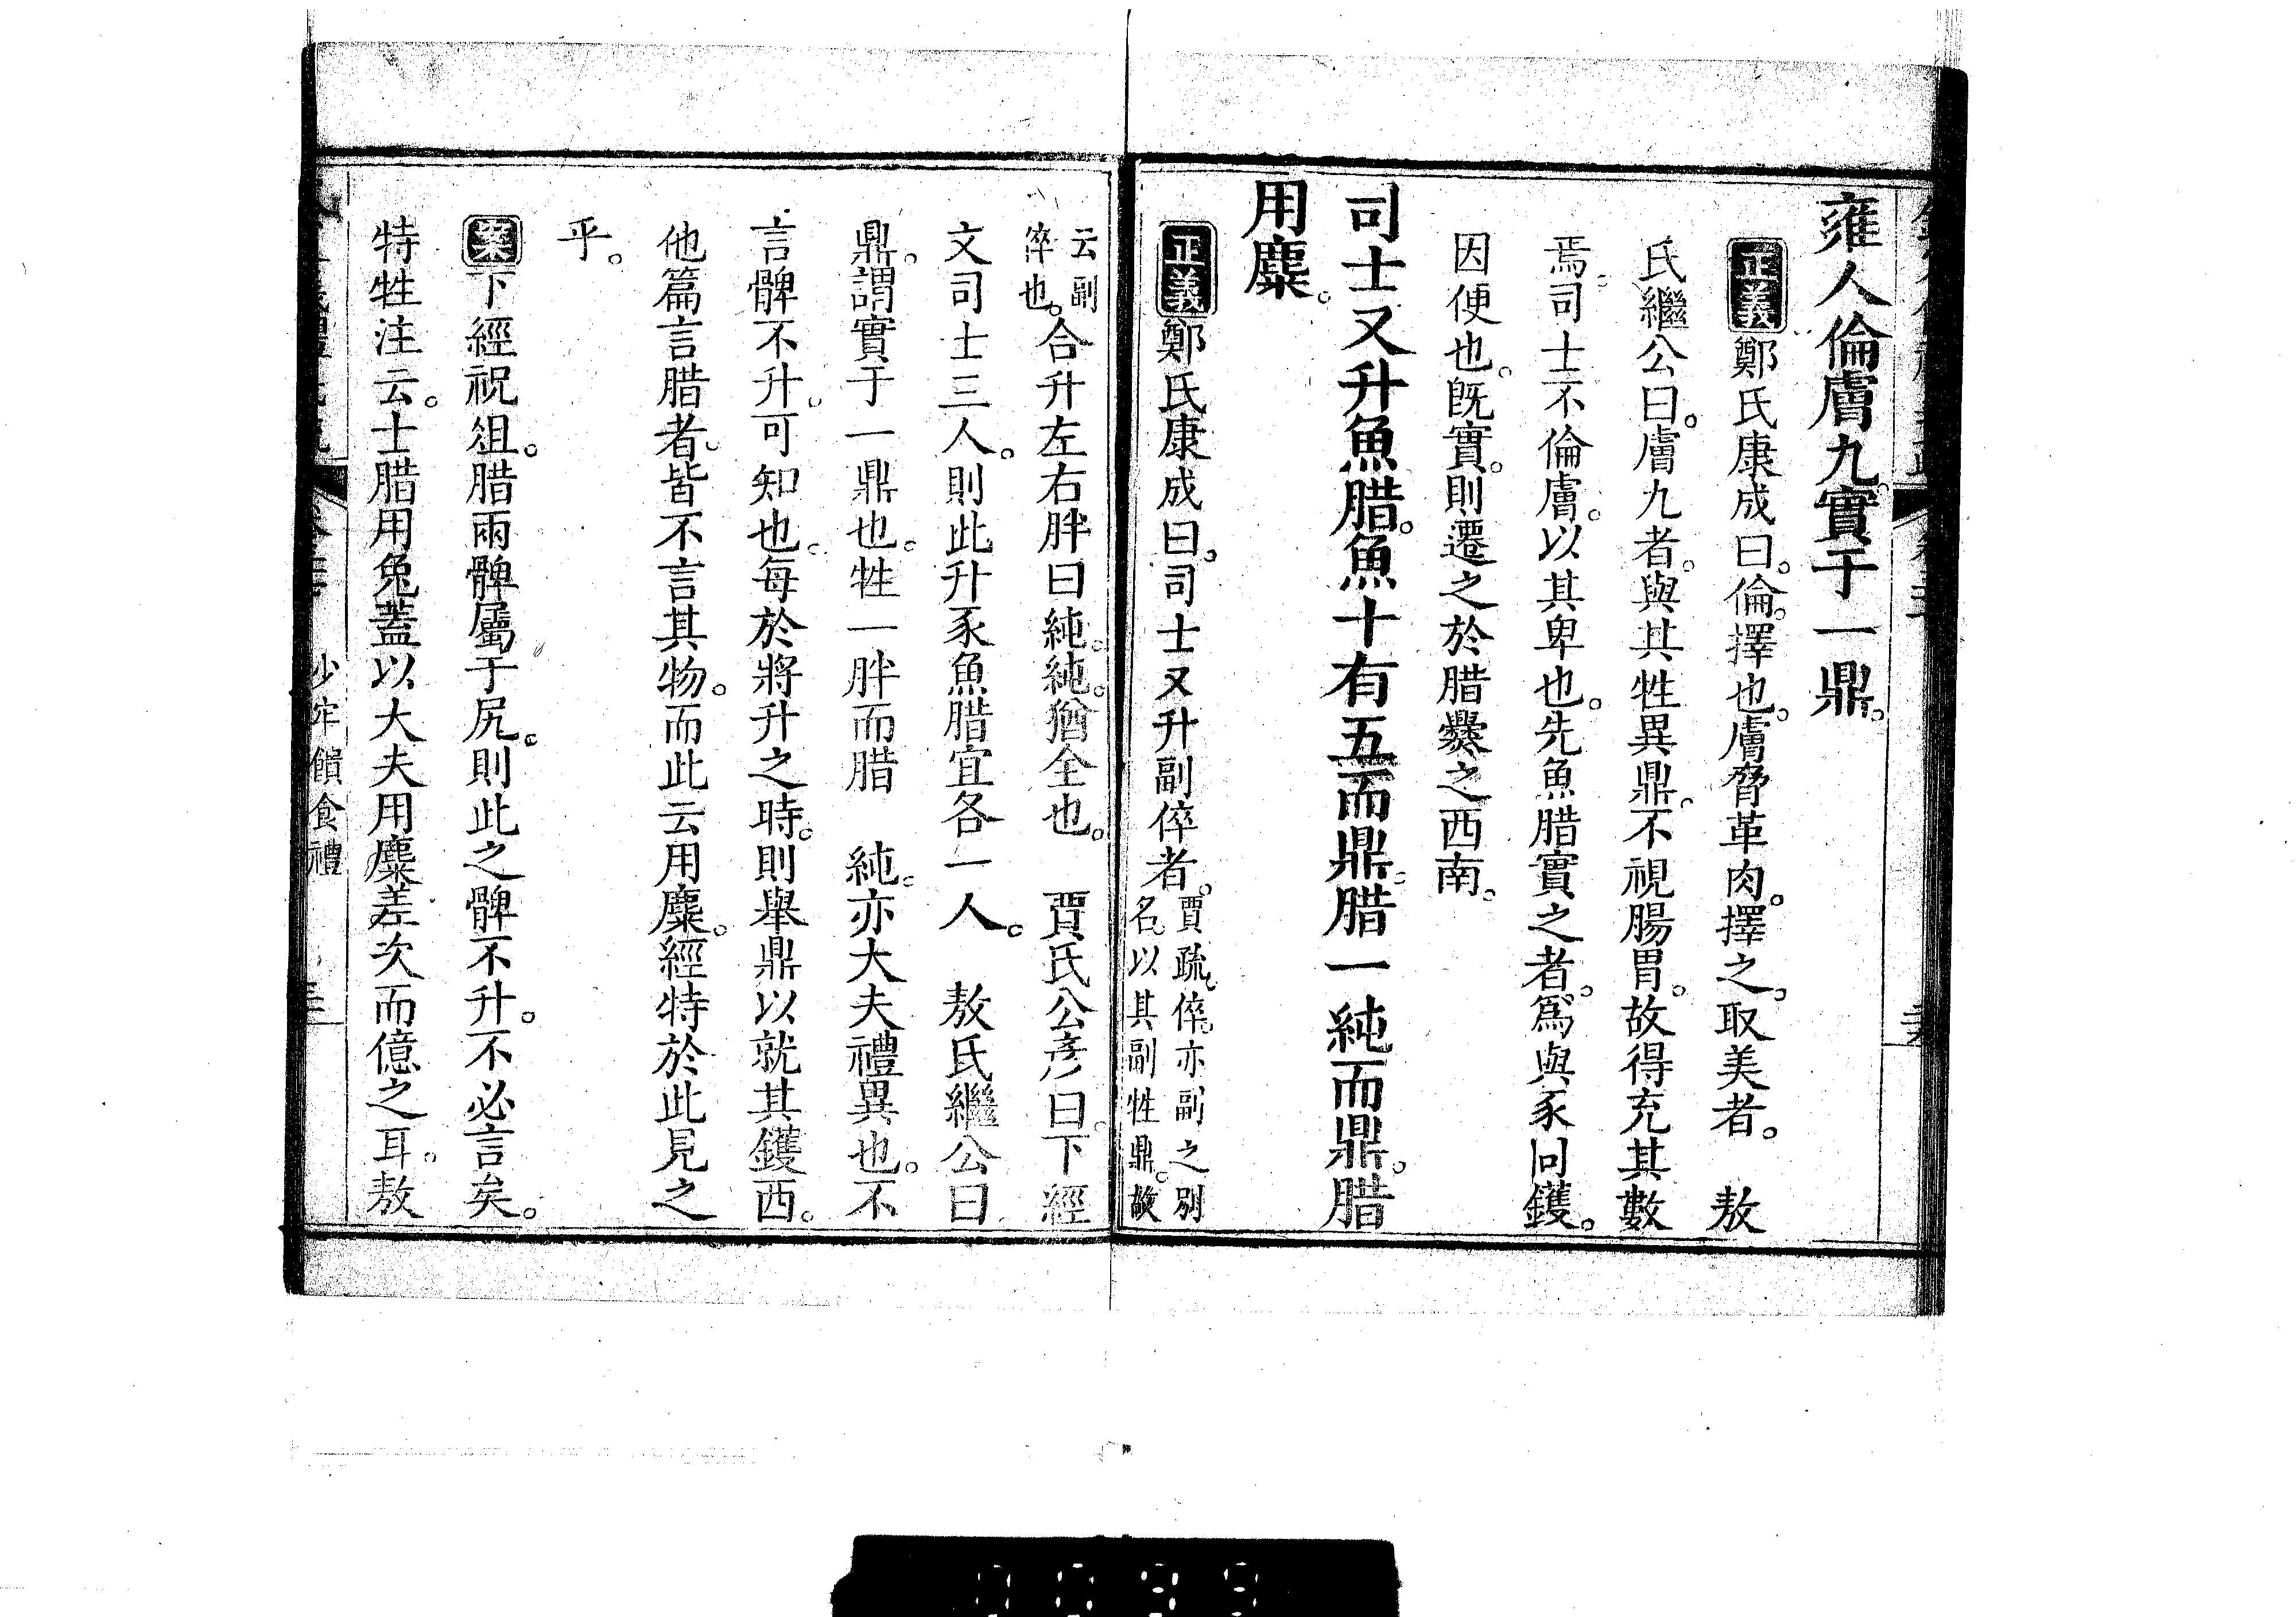 雍人倫膚九。實于一鼎。
正義鄭氏康成曰。倫。擇也。膚脅革肉。擇之。取美者。 敖
氏繼公曰。膚九者。與其牲異鼎。不視腸胃。故得充其數
焉。司士不倫膚。以其卑也。先魚腊實之者。爲與豕同鑊。
因便也。旣實。則遷之於腊爨之西南。
司士又升魚腊。魚十有五而鼎。腊一純而鼎。腊
用麋。
正義鄭氏康成曰。司士又升副倅者。賈疏。倅。亦副之別
名。以其副牲鼎。故
云副
倅也。合升左右胖曰純。純。猶全也。 賈氏公彥曰。下經
文司士三人。則此升豕魚腊宜各一人。 敖氏繼公曰
鼎。謂實于一鼎也。牲一胖而腊 純。亦大夫禮異也。不
言髀不升。可知也。每於將升之時。則舉鼎以就其鑊西。
他篇言腊者。皆不言其物。而此云用麋。經特於此見之
乎。
案下經祝俎。腊兩髀屬于尻。則此之髀不升。不必言矣。
特牲注云。士腊用兔蓋以大夫用麋差次而億之耳。敖
少牢饋食禮